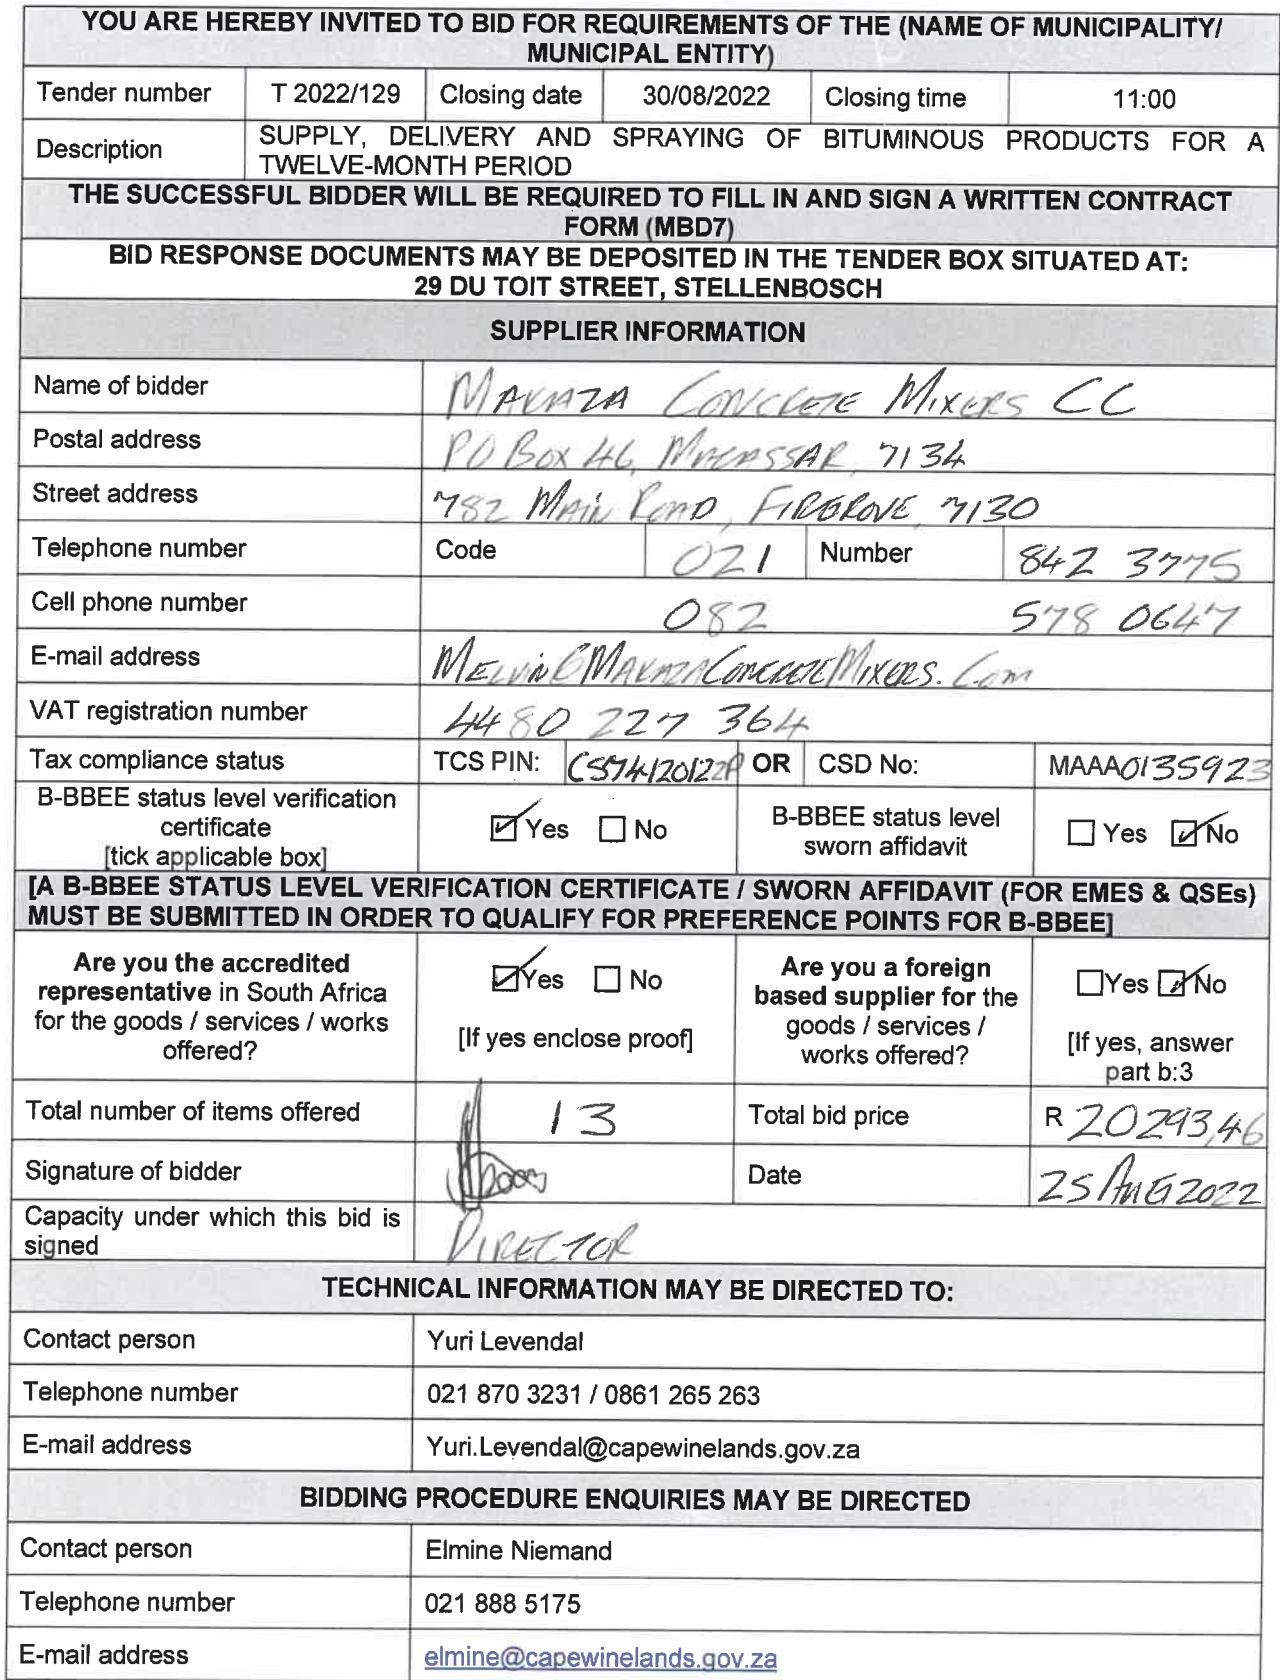 YOU ARE HEREBY INVITED TO BID FOR REQUIREMENTS OF THE (NAME OF MUNICIPALITY/
MUNICIPAL ENTITY)
Tender number T 2022/129 Closing date 30/08/2022 Closing time 11:00
Description SUPPLY, DELIVERY AND SPRAYING OF BITUMINOUS PRODUCTS FOR A
TWELVE-MONTH PERIOD
THE SUCCESSFUL BIDDER WILL BE REQUIRED TO FILL IN AND SIGN A WRITTEN CONTRACT
FORM (MBD7)
BID RESPONSE DOCUMENTS MAY BE DEPOSITED IN THE TENDER BOX SITUATED AT:
29 DU TOIT STREET, STELLENBOSCH
SUPPLIER INFORMATION
Name of bidder MAKAZA CONCRETE MIXERS CC
Postal address PO BOX 46, MACASSAR, 7134
Street address 782 MAIN ROAD, FIRGROVE, 7130
Telephone number Code 021 Number 842 3775
Cell phone number 082 578 0647
E-mail address MELVIN@MAKAZACONCRETEMIXERS.COM
VAT registration number 4480 227 364
Tax compliance status TCS PIN: C57412012ZP OR CSD No: MAAA0135923
B-BBEE status level verification
certificate
[tick applicable box]
Yes No
B-BBEE status level
sworn affidavit
Yes No
[A B-BBEE STATUS LEVEL VERIFICATION CERTIFICATE / SWORN AFFIDAVIT (FOR EMES & QSEs)
MUST BE SUBMITTED IN ORDER TO QUALIFY FOR PREFERENCE POINTS FOR B-BBEE]
Are you the accredited
representative in South Africa
for the goods / services / works
offered?
Yes No
[If yes enclose proof]
Are you a foreign
based supplier for the
goods / services /
works offered?
Yes No
[If yes, answer
part b:3
Total number of items offered 13 Total bid price R 20293,46
Signature of bidder Date 25 AUG 2022
Capacity under which this bid is
signed
DIRECTOR
TECHNICAL INFORMATION MAY BE DIRECTED TO:
Contact person Yuri Levendal
Telephone number 021 870 3231 / 0861 265 263
E-mail address Yuri.Levendal@capewinelands.gov.za
BIDDING PROCEDURE ENQUIRIES MAY BE DIRECTED
Contact person Elmine Niemand
Telephone number 021 888 5175
E-mail address elmine@capewinelands.gov.za